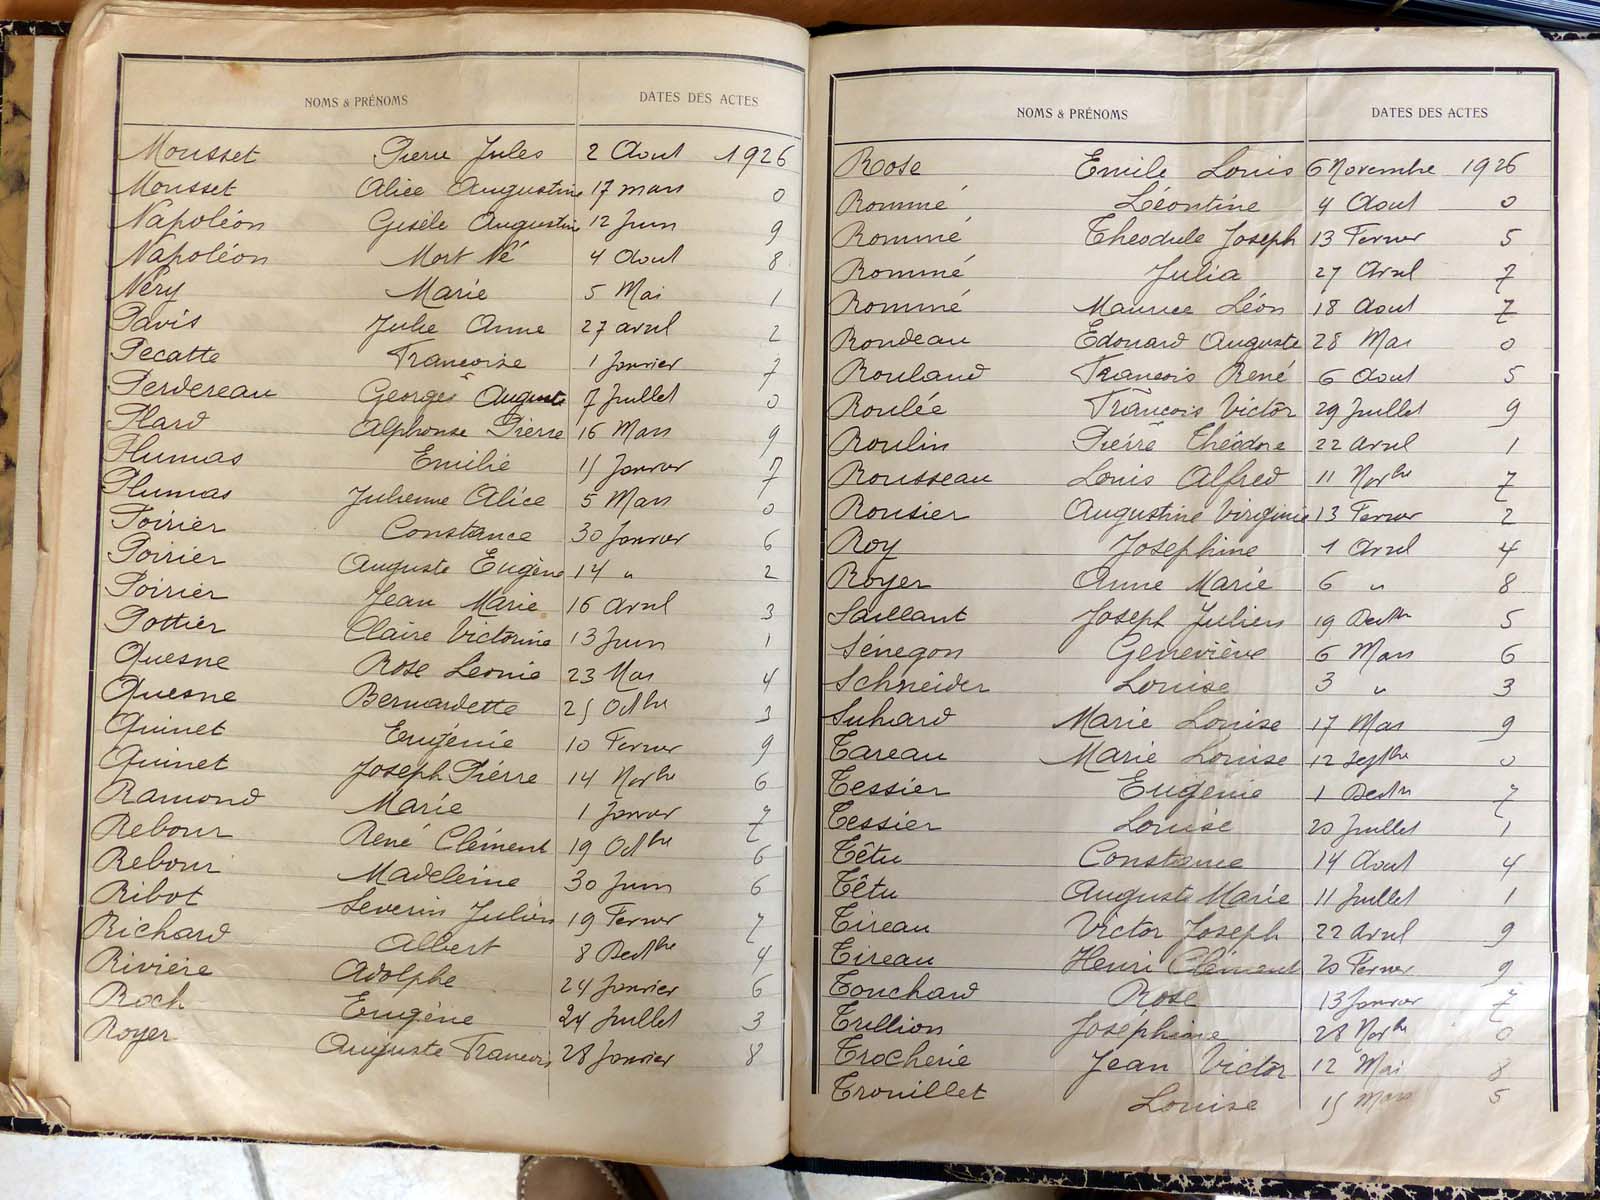 NOMS & PRÉNOMS DATES DES ACTES
Mousset Pierre Jules 2 Aout 1926
Mousset Alice Augustine 17 mars 0
Napoléon Gisèle Augustine 12 Juin 9
Napoléon Mort Né 4 Aout 8
Néry Marie 5 Mai 1
Pavis Julie Anne 27 avril 2
Pecatte Francoise 1 Janvier 7
Perdereau Georges Auguste 7 Juillet 0
Plard Alphonse Pierre 16 Mars 9
Plumas Emilie 15 Janvier 7
Plumas Julienne Alice 5 Mars 0
Poirier Constance 30 Janvier 6
Poirier Auguste Eugène 14 " 2
Poirier Jean Marie 16 Avril 3
Pottier Claire Victorine 13 Juin 1
Quesne Rose Leonie 23 Mai 4
Quesne Bernardette 25 Octbre 3
Quinet Eugénie 10 Fevrier 9
Quinet Joseph Pierre 14 Novbre 6
Ramond Marie 1 Janvier 7
Rebour René Clément 19 Octbre 6
Rebour Madeleine 30 Juin 6
Ribot Severin Julien 19 Fevrier 7
Richard Albert 8 Decbre 4
Rivière Adolphe 24 Janvier 6
Roch Eugène 24 Juillet 3
Royer Auguste Francois 28 Janvier 8
NOMS & PRÉNOMS DATES DES ACTES
Rose Emile Louis 6 Novembre 1926
Rommé Léontine 4 Aout 0
Rommé Theodule Joseph 13 Fevrier 5
Rommé Julia 27 Avril 7
Rommé Maurice Léon 18 Aout 7
Rondeau Edouard Auguste 28 Mai 0
Rouland Francois René 6 Aout 5
Roulée Francois Victor 29 Juillet 9
Roulin Pierre Théodore 22 Avril 1
Rousseau Louis Alfred 11 Novbre 7
Rousier Augustine Virginie 13 Fevrier 2
Roy Josephine 1 Avril 4
Royer Anne Marie 6 " 8
Saillant Joseph Julien 19 Decbre 5
Sénegon Geneviève 6 Mars 6
Schneider Louise 3 " 3
Suhard Marie Louise 17 Mai 9
Tareau Marie Louise 12 Septbre 0
Tessier Eugénie 1 Decbre 7
Tessier Louise 20 Juillet 1
Têtu Constance 14 Aout 4
Têtu Auguste Marie 11 Juillet 1
Tireau Victor Joseph 22 Avril 9
Tireau Henri Clément 20 Fevrier 9
Touchard Rose 13 Janvier 7
Trillion Joséphine 28 Novbre 0
Trocherie Jean Victor 12 Mai 8
Trouillet Louise 15 Mars 5